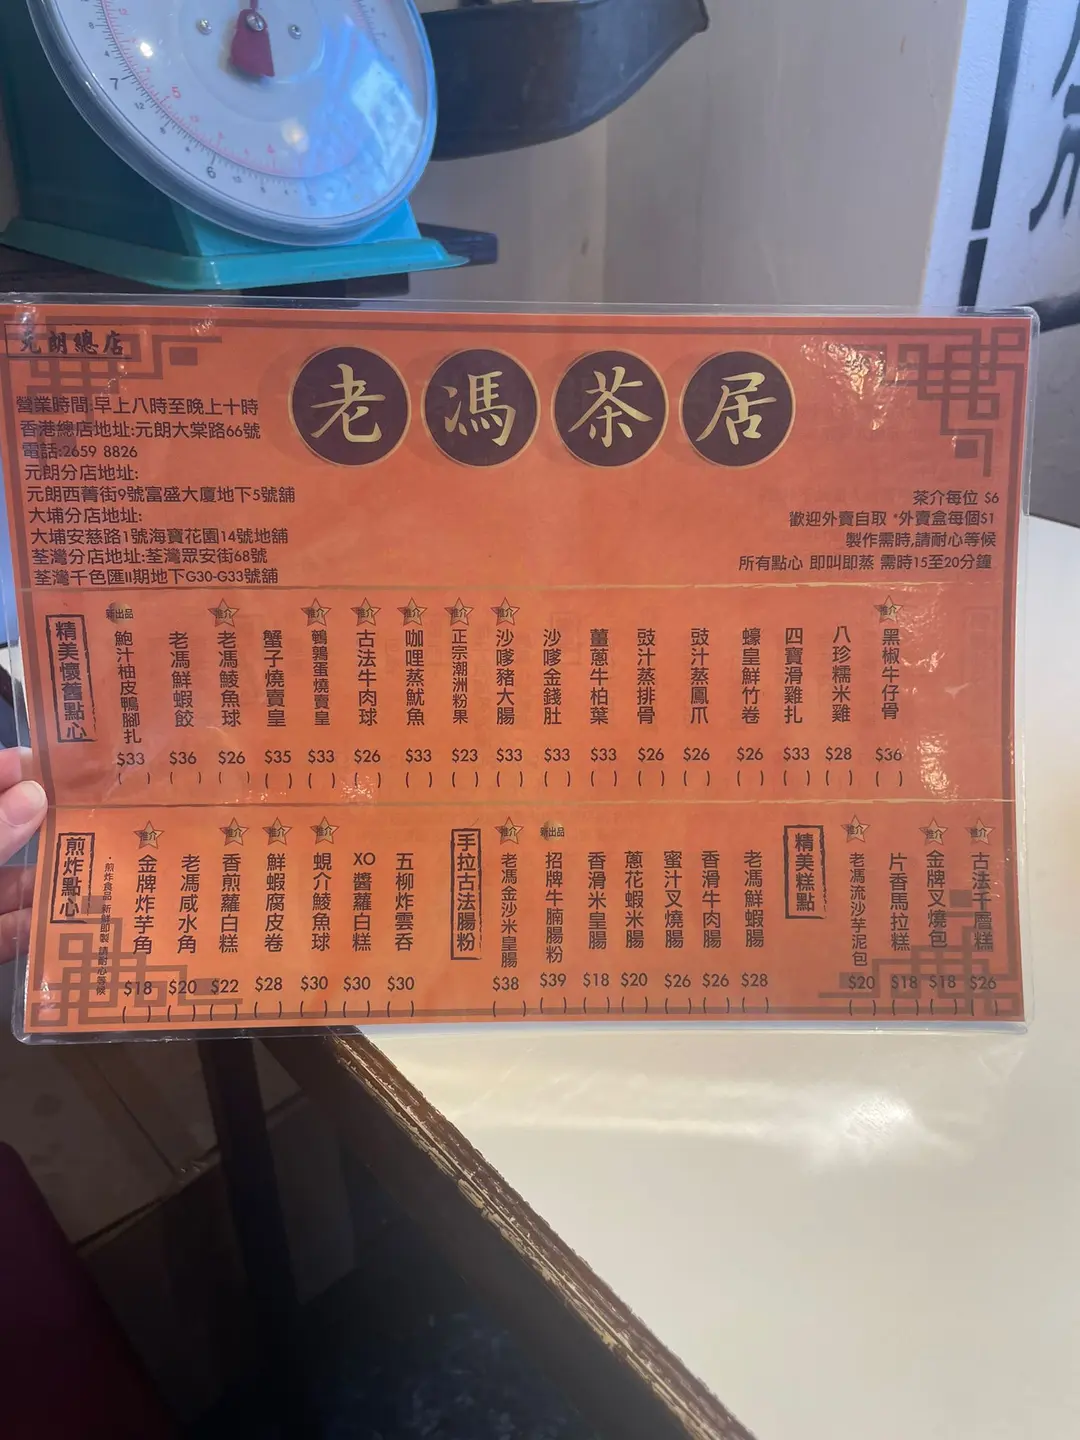 元朗總店
老馮茶居
營業時間:早上八時至晚上十時
香港總店地址:元朗大棠路66號
電話:2659 8826
元朗分店地址:
元朗西菁街9號富盛大廈地下5號舖
大埔分店地址:
大埔安慈路1號海寶花園14號地舖
荃灣分店地址:荃灣眾安街68號
荃灣千色匯II期地下G30-G33號舖
茶介每位 $6
歡迎外賣自取 *外賣盒每個$1
製作需時,請耐心等候
所有點心 即叫即蒸 需時15至20分鐘
精美懷舊點心
新出品 鮑汁柚皮鴨腳扎 $33 ( )
老馮鮮蝦餃 $36 ( )
推介 老馮鯪魚球 $26 ( )
蟹子燒賣皇 $35 ( )
推介 鵪鶉蛋燒賣皇 $33 ( )
推介 古法牛肉球 $26 ( )
推介 咖哩蒸魷魚 $33 ( )
推介 正宗潮洲粉果 $23 ( )
推介 沙嗲豬大腸 $33 ( )
沙嗲金錢肚 $33 ( )
薑蔥牛柏葉 $33 ( )
豉汁蒸排骨 $26 ( )
豉汁蒸鳳爪 $26 ( )
蠔皇鮮竹卷 $26 ( )
四寶滑雞扎 $33 ( )
八珍糯米雞 $28 ( )
推介 黑椒牛仔骨 $36 ( )
煎炸點心
·煎炸食品 新鮮即製 請耐心等候
推介 金牌炸芋角 $18 ( )
老馮咸水角 $20 ( )
推介 香煎蘿白糕 $22 ( )
推介 鮮蝦腐皮卷 $28 ( )
推介 蜆介鯪魚球 $30 ( )
XO醬蘿白糕 $30 ( )
五柳炸雲吞 $30 ( )
手拉古法腸粉
推介 老馮金沙米皇腸 $38 ( )
新出品 招牌牛腩腸粉 $39 ( )
香滑米皇腸 $18 ( )
蔥花蝦米腸 $20 ( )
蜜汁叉燒腸 $26 ( )
香滑牛肉腸 $26 ( )
老馮鮮蝦腸 $28 ( )
精美糕點
推介 老馮流沙芋泥包 $20 ( )
片香馬拉糕 $18 ( )
推介 金牌叉燒包 $18 ( )
推介 古法千層糕 $26 ( )
7
6
5
4